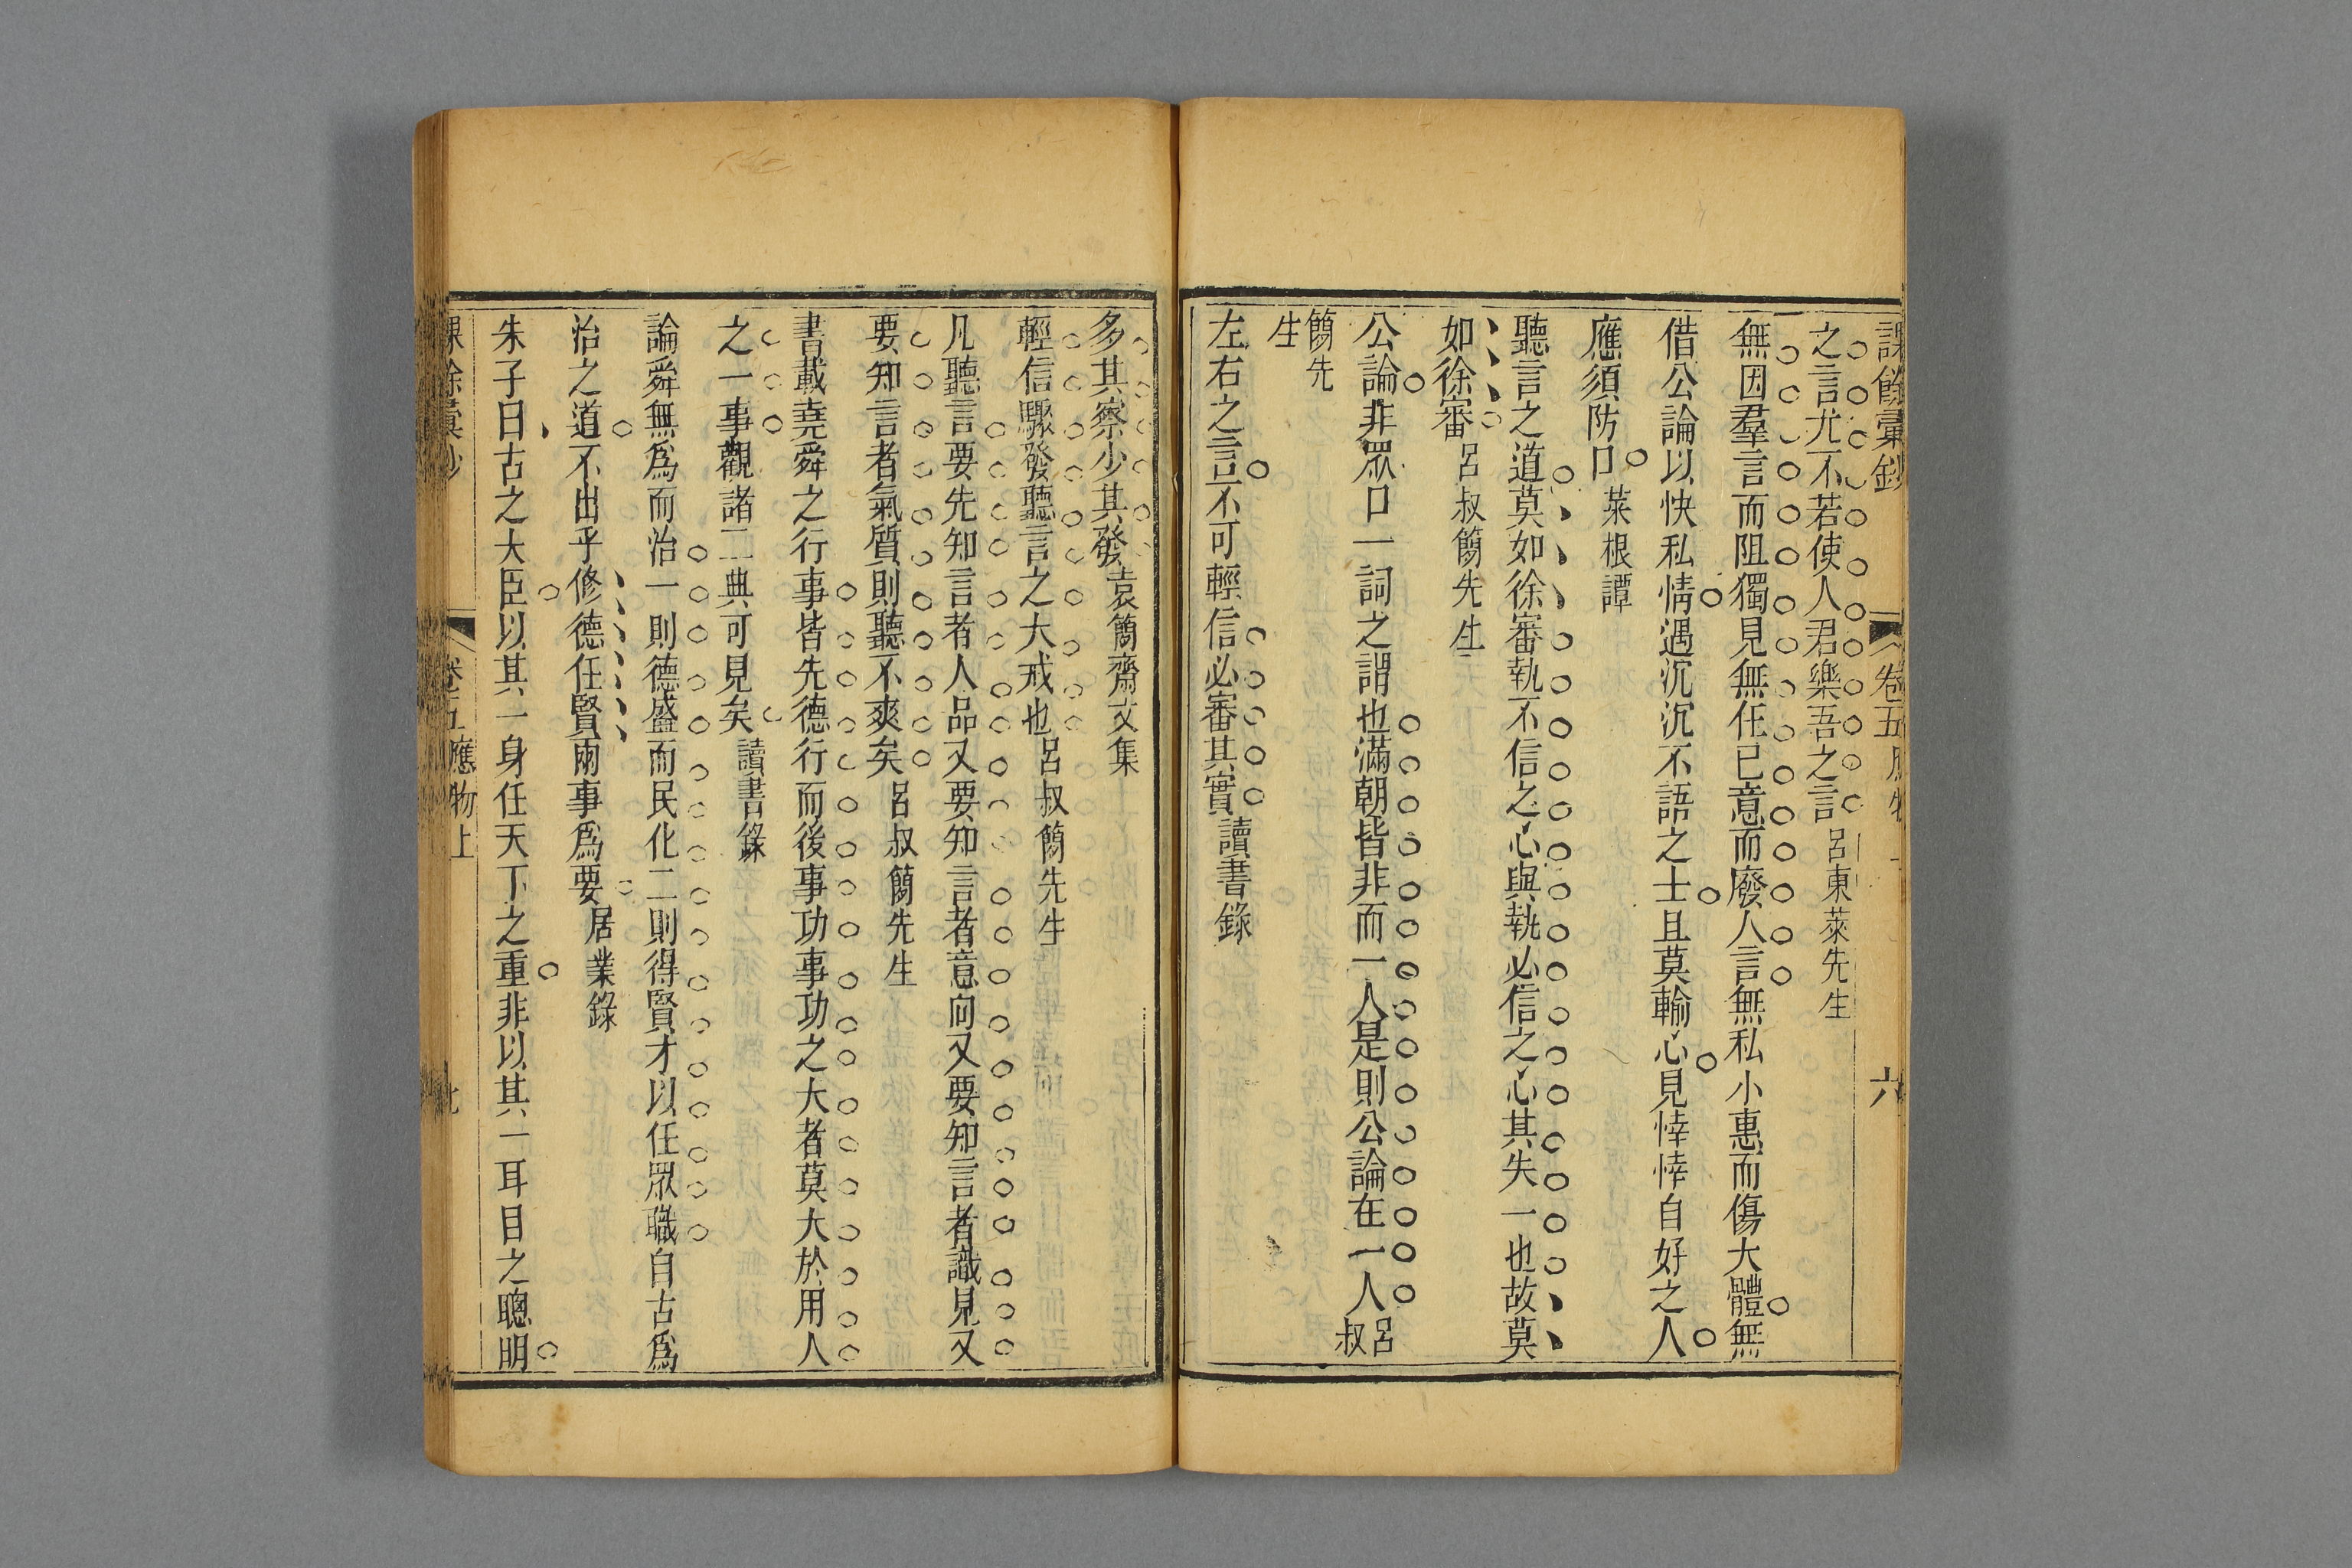 課餘彙鈔
卷五
六
之言尤不若使人君樂吾之言呂東萊先生
無因羣言而阻獨見無任已意而廢人言無私小惠而傷大體無
借公論以快私情遇沉沉不語之士且莫輸心見悻悻自好之人
應須防口菜根譚
聽言之道莫如徐審執不信之心與執必信之心其失一也故莫
如徐審呂叔簡先生
公論非眾口一詞之謂也滿朝皆非而一人是則公論在一人呂叔
簡先生
左右之言不可輕信必審其實讀書錄
多其察少其發袁簡齋文集
輕信驟發聽言之大戒也呂叔簡先生
凡聽言要先知言者人品又要知言者意向又要知言者識見又
要知言者氣質則聽不爽矣呂叔簡先生
書載堯舜之行事皆先德行而後事功事功之大者莫大於用人
之一事觀諸二典可見矣讀書錄
論舜無為而治一則德盛而民化二則得賢才以任眾職自古為
治之道不出乎修德任賢兩事為要居業錄
朱子曰古之大臣以其一身任天下之重非以其一耳目之聰明
課餘彙鈔
卷五應物上